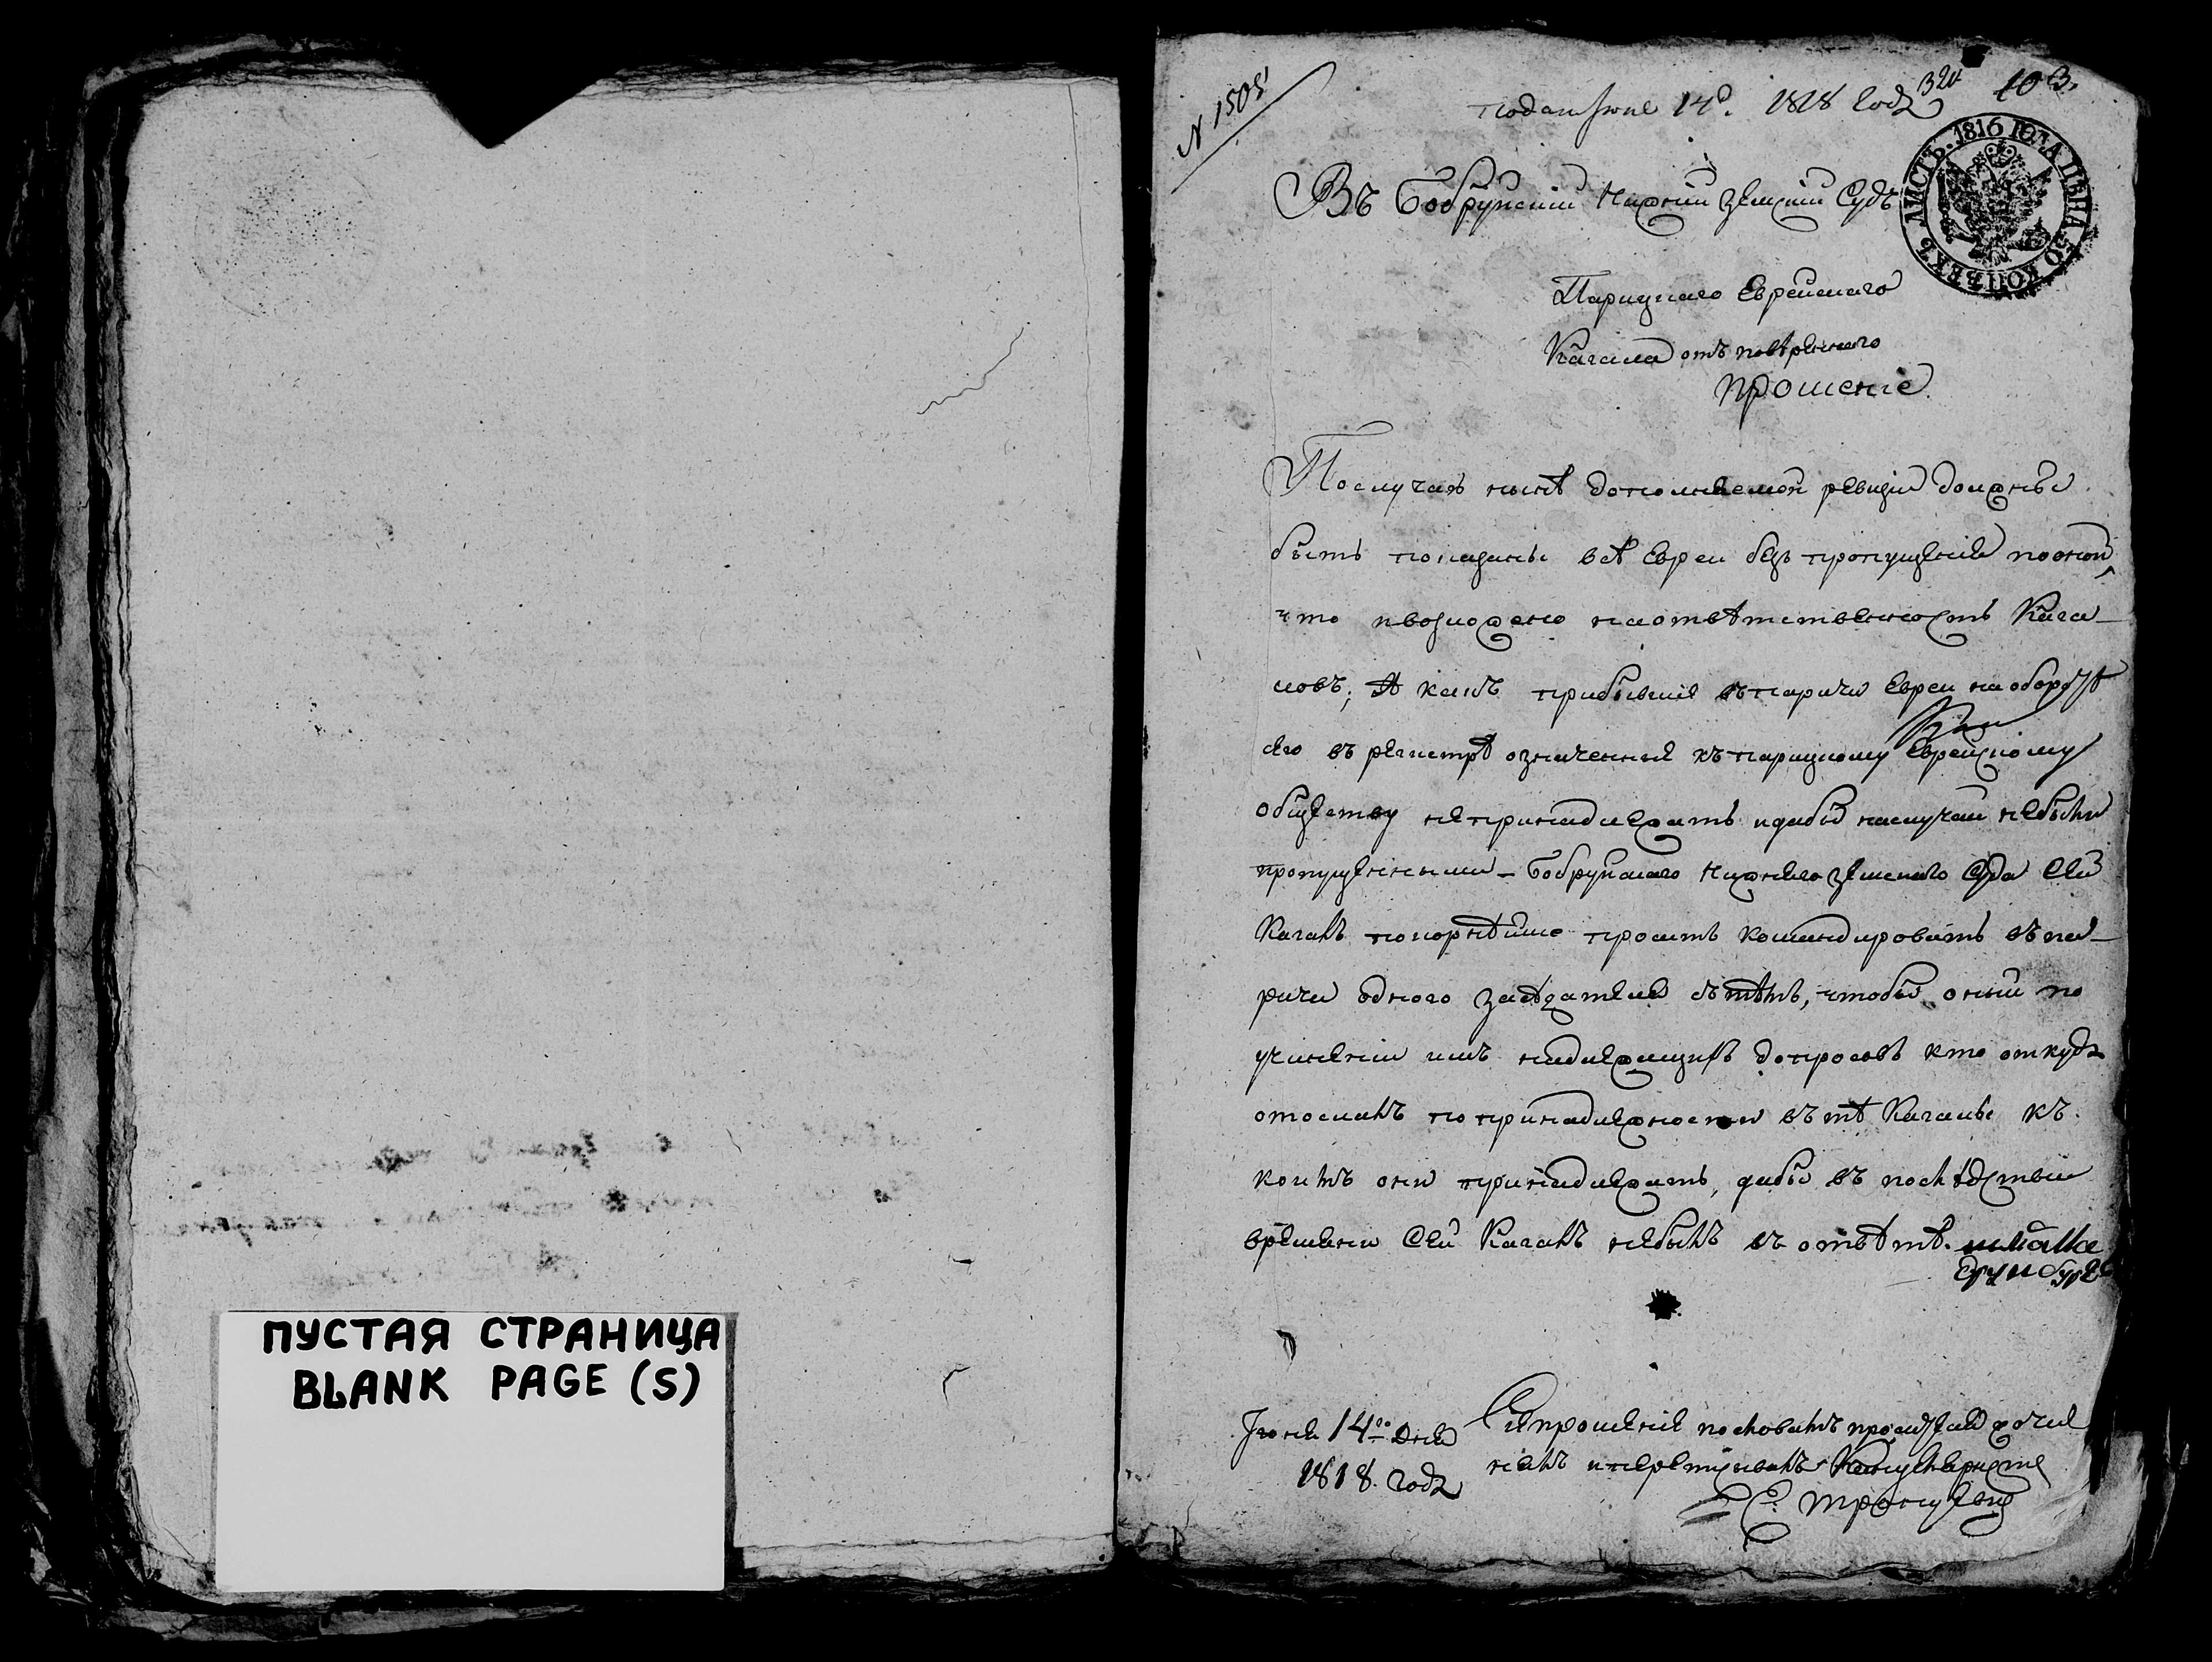 ПУСТАЯ СТРАНИЦА
BLANK PAGE (S)
N 1505
324
103.
подан Іюня 14д. 1818 года
ЛИСТЪ. 1816 ГОДА ЦѢНА 50 КОПѢЕКЪ
Въ Бобруйскій Нижній Земскій Судъ
Парицкаго Еврейскаго
Кагала отъ повѣреннаго
Прошеніе.
Послучаю нынѣ дополняемой ревизіи должны
быть показаны всѣ Евреи безъ пропущенія пооной,
что ивозложено наответственность Кага-
ловъ; А какъ прибывшіе въпаричи Евреи наоборотѣ
сего въ регистрѣ означенные къпарицкому Еврейскому
обществу непринадлежатъ идабы наслучай небыли
пропущенными - Бобруйскаго Нижняго земскаго Суда Сей
Кагалъ покорнѣйше проситъ командировать въпа-
ричи одного засѣдателя стѣмъ, чтобы оный по
учиненіи имъ надлежащихъ допросовъ кто откуда
отослалъ попринадлежности въ тѣ Кагалы къ
коимъ они принадлежатъ, дабы въ послѣдствіи
времени Сей Кагалъ небылъ въ отвѣтѣ.
Іюня 14го Дня
1818. года
Сіе прошеніе пословамъ просителя сочи
нялъ иперепісывалъ